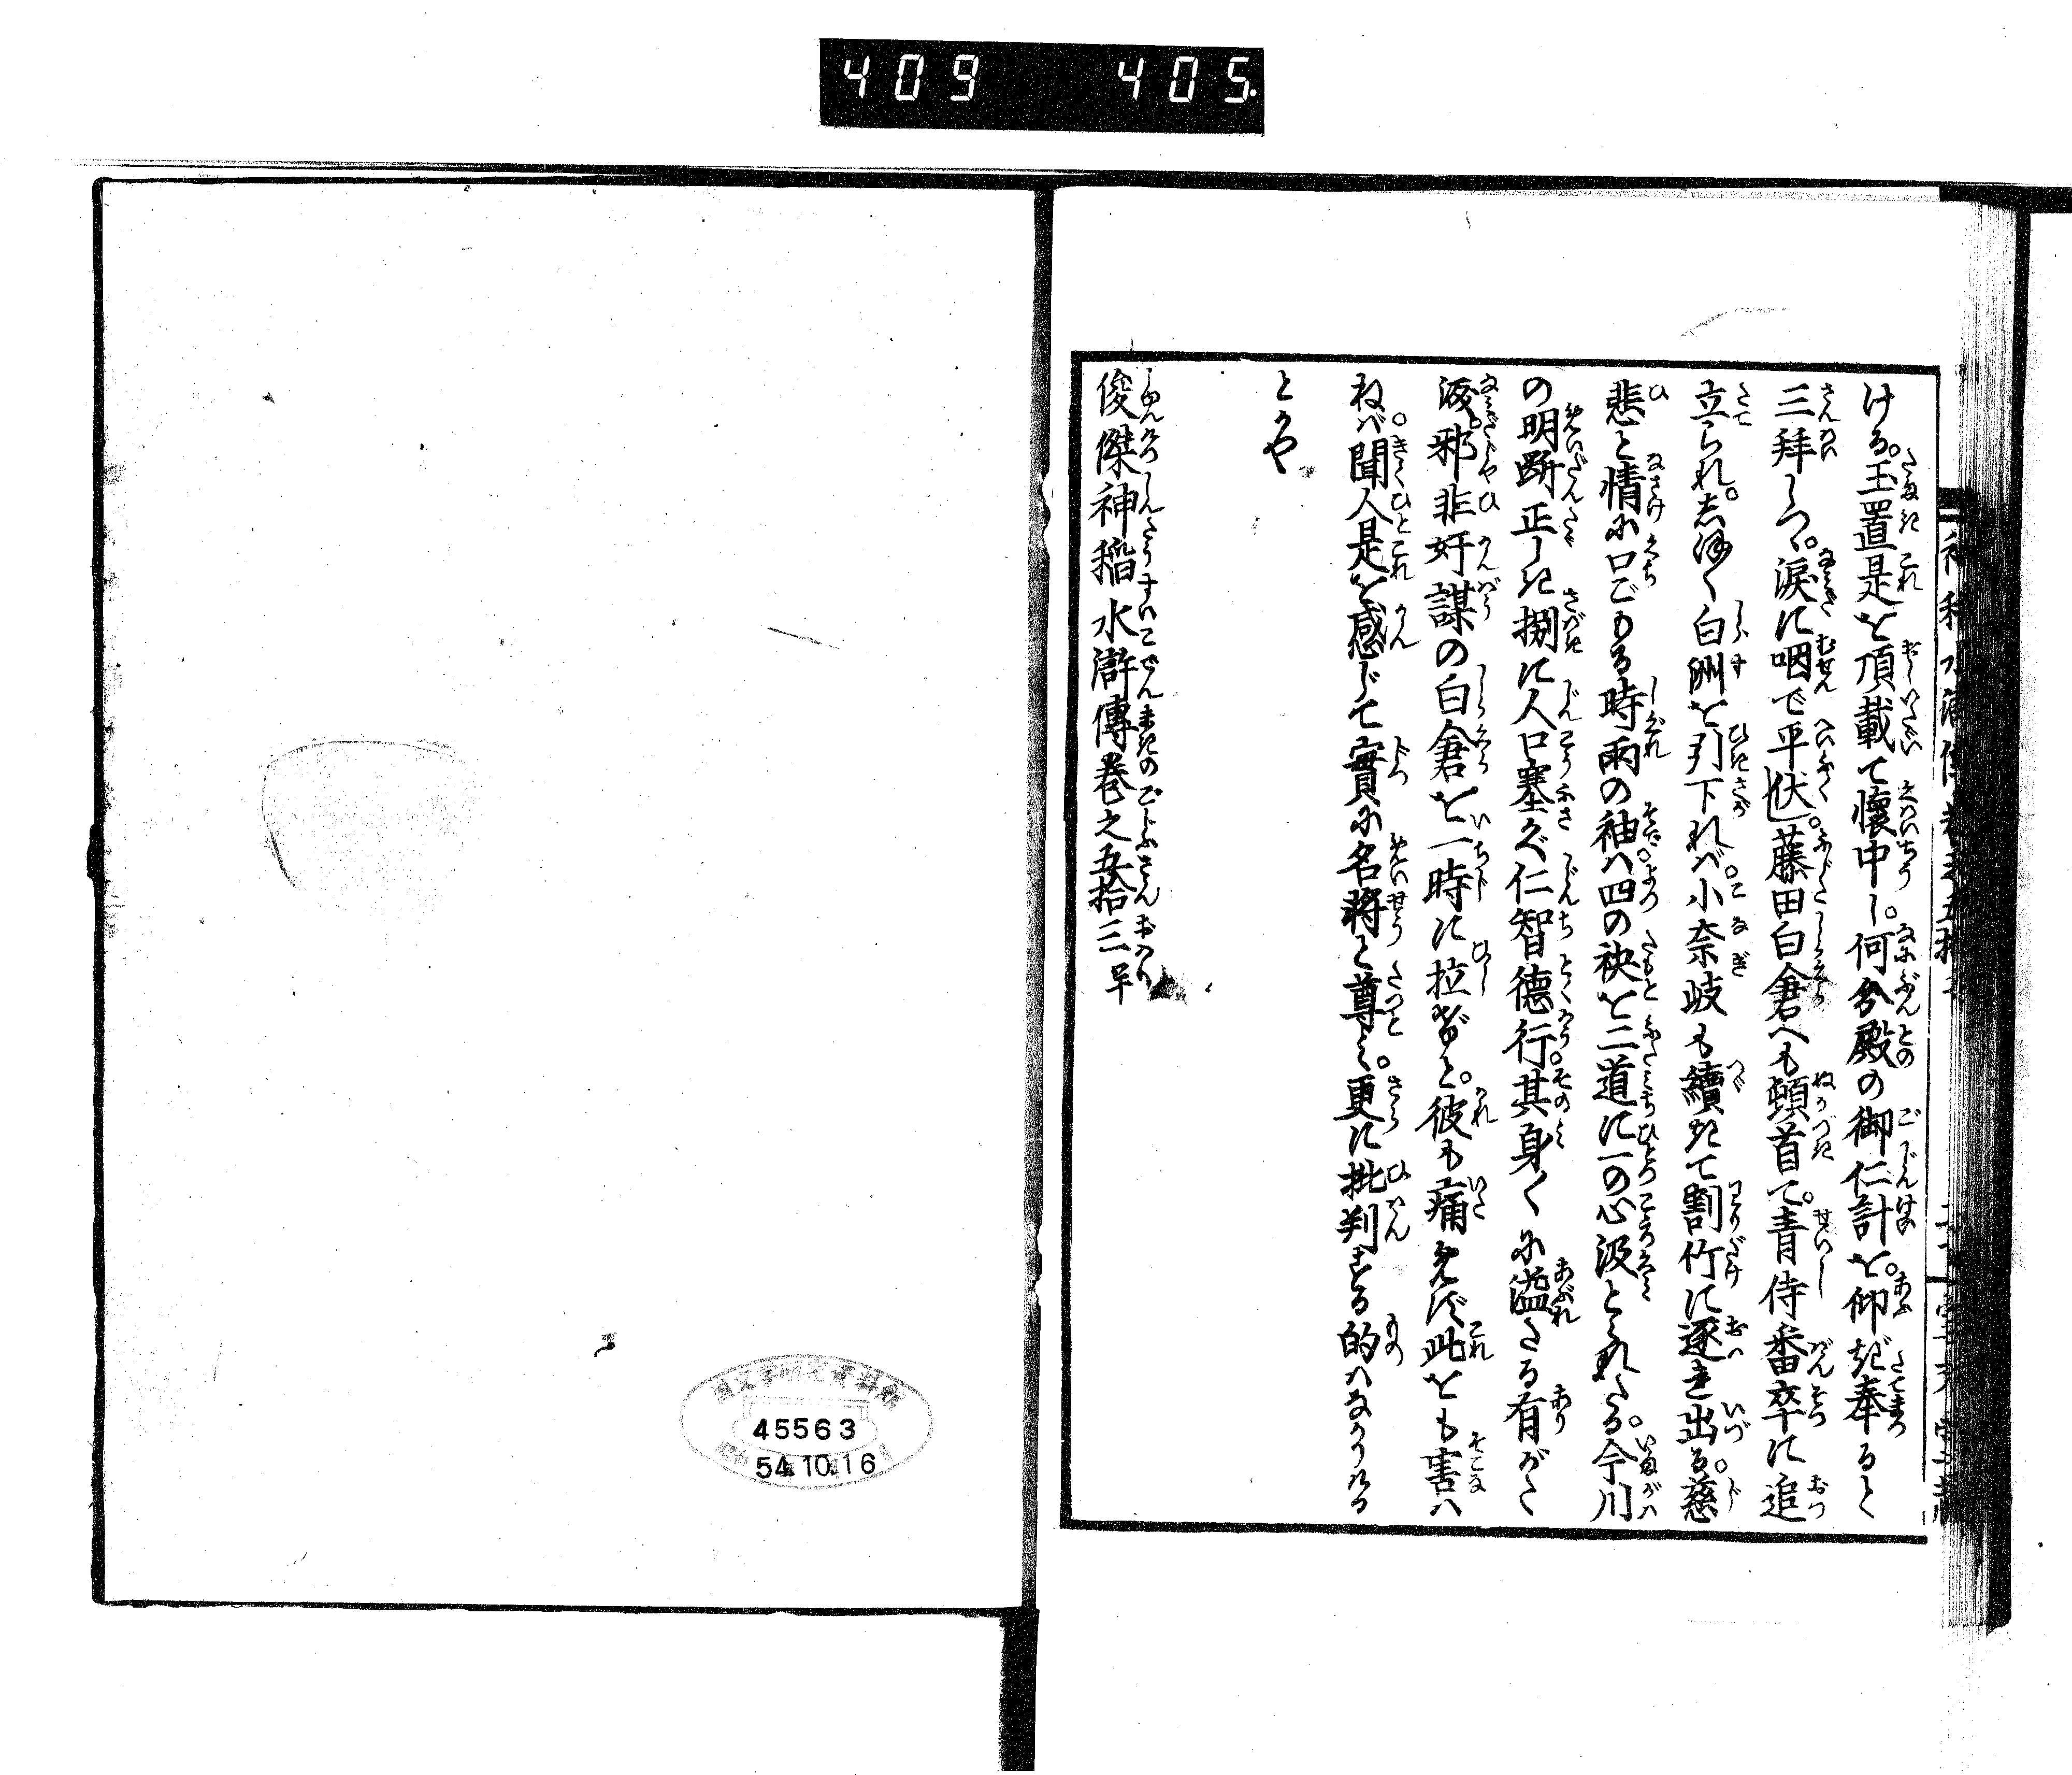 409 405
ける。玉置是を頂載て懐中し。何分殿の御仁計を。仰ぎ奉ると
三拝しつゝ。涙に咽で平伏し。藤田白倉へも頓首て。青侍番卒に追
立られ。しほ〳〵白洲を引下れバ。小奈岐も續きて割竹に逐れ出る。慈
悲と情に口ごもる時雨の袖ハ四の袂を二道に一の心汲とられたる。今川
の明断正しき捌に人口塞ぐ仁智德行。其身〳〵に溢たる有がた
涙。邪非奸謀の白倉を一時に拉ぎと。彼も痛めず此をも害ハ
ねバ。聞人是を感じて實に名將と尊み。更に批判する的ハなかりける
とかや
俊傑神稲水滸傳巻之五拾三卒
45563
54.10.16